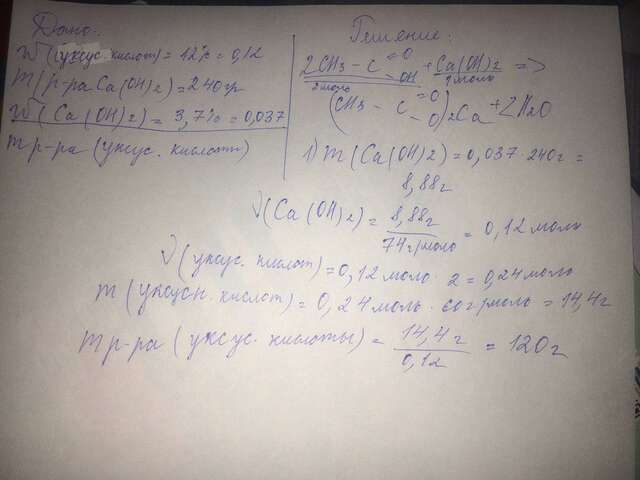 Дано:
W (уксус. кислот) = 12% = 0,12
m (р-ра Ca(OH)2) = 240гр
W (Ca(OH)2) = 3,7% = 0,037
m р-ра (уксус. кислот)
Решение:
2CH3 - C =O -OH + Ca(OH)2 =>
2моль 1моль
(CH3 - C =O -O)2Ca + 2H2O
1) m (Ca(OH)2) = 0,037 · 240г =
8,88г
√(Ca(OH)2) = 8,88г / 74г/моль = 0,12моль
√(уксус. кислот) = 0,12моль · 2 = 0,24моль
m (уксусн. кислот) = 0,24моль · 60г/моль = 14,4г
m р-ра (уксус. кислоты) = 14,4г / 0,12 = 120г